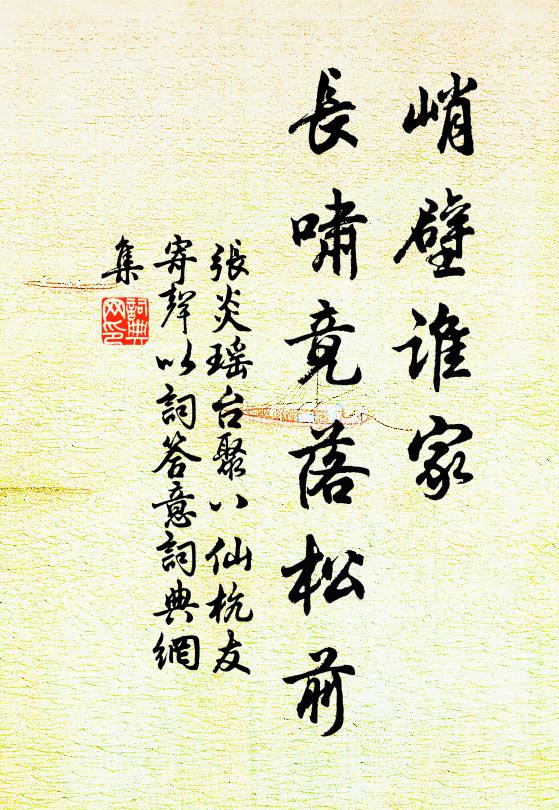 峭壁誰家
長嘯竟落松前
張炎瑶台聚八仙杭友
寄聲以詞答意詞典網
集
詞典网印